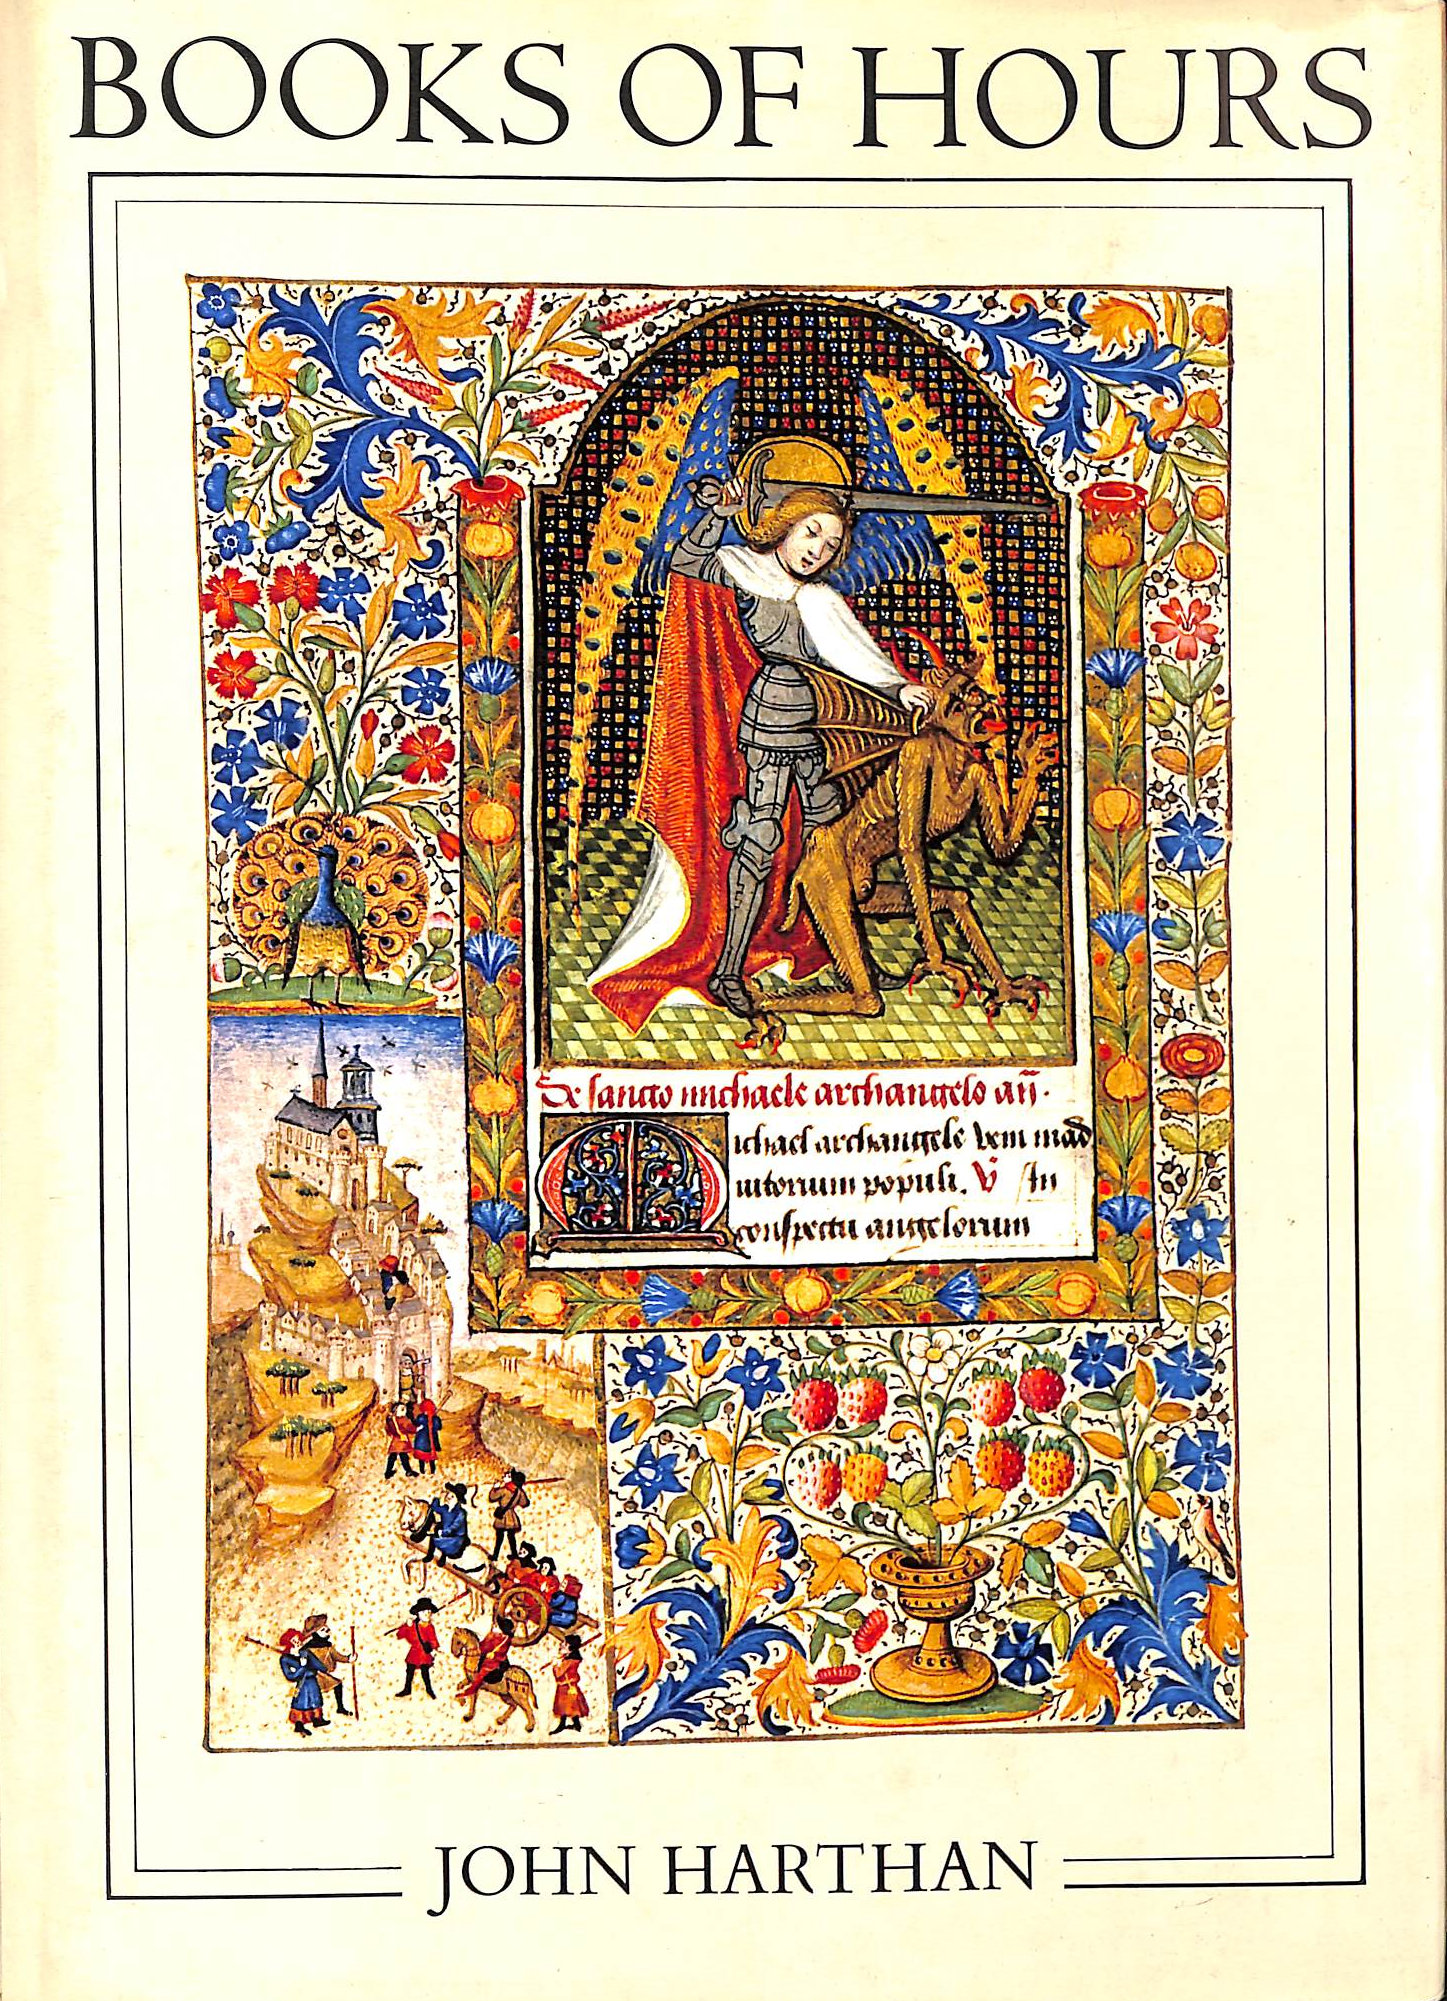 BOOKS OF HOURS
De sancto michaele archangelo añ.
Michael archangele veni in ad
iutorium populi. V̄ In
conspectu angelorum
JOHN HARTHAN